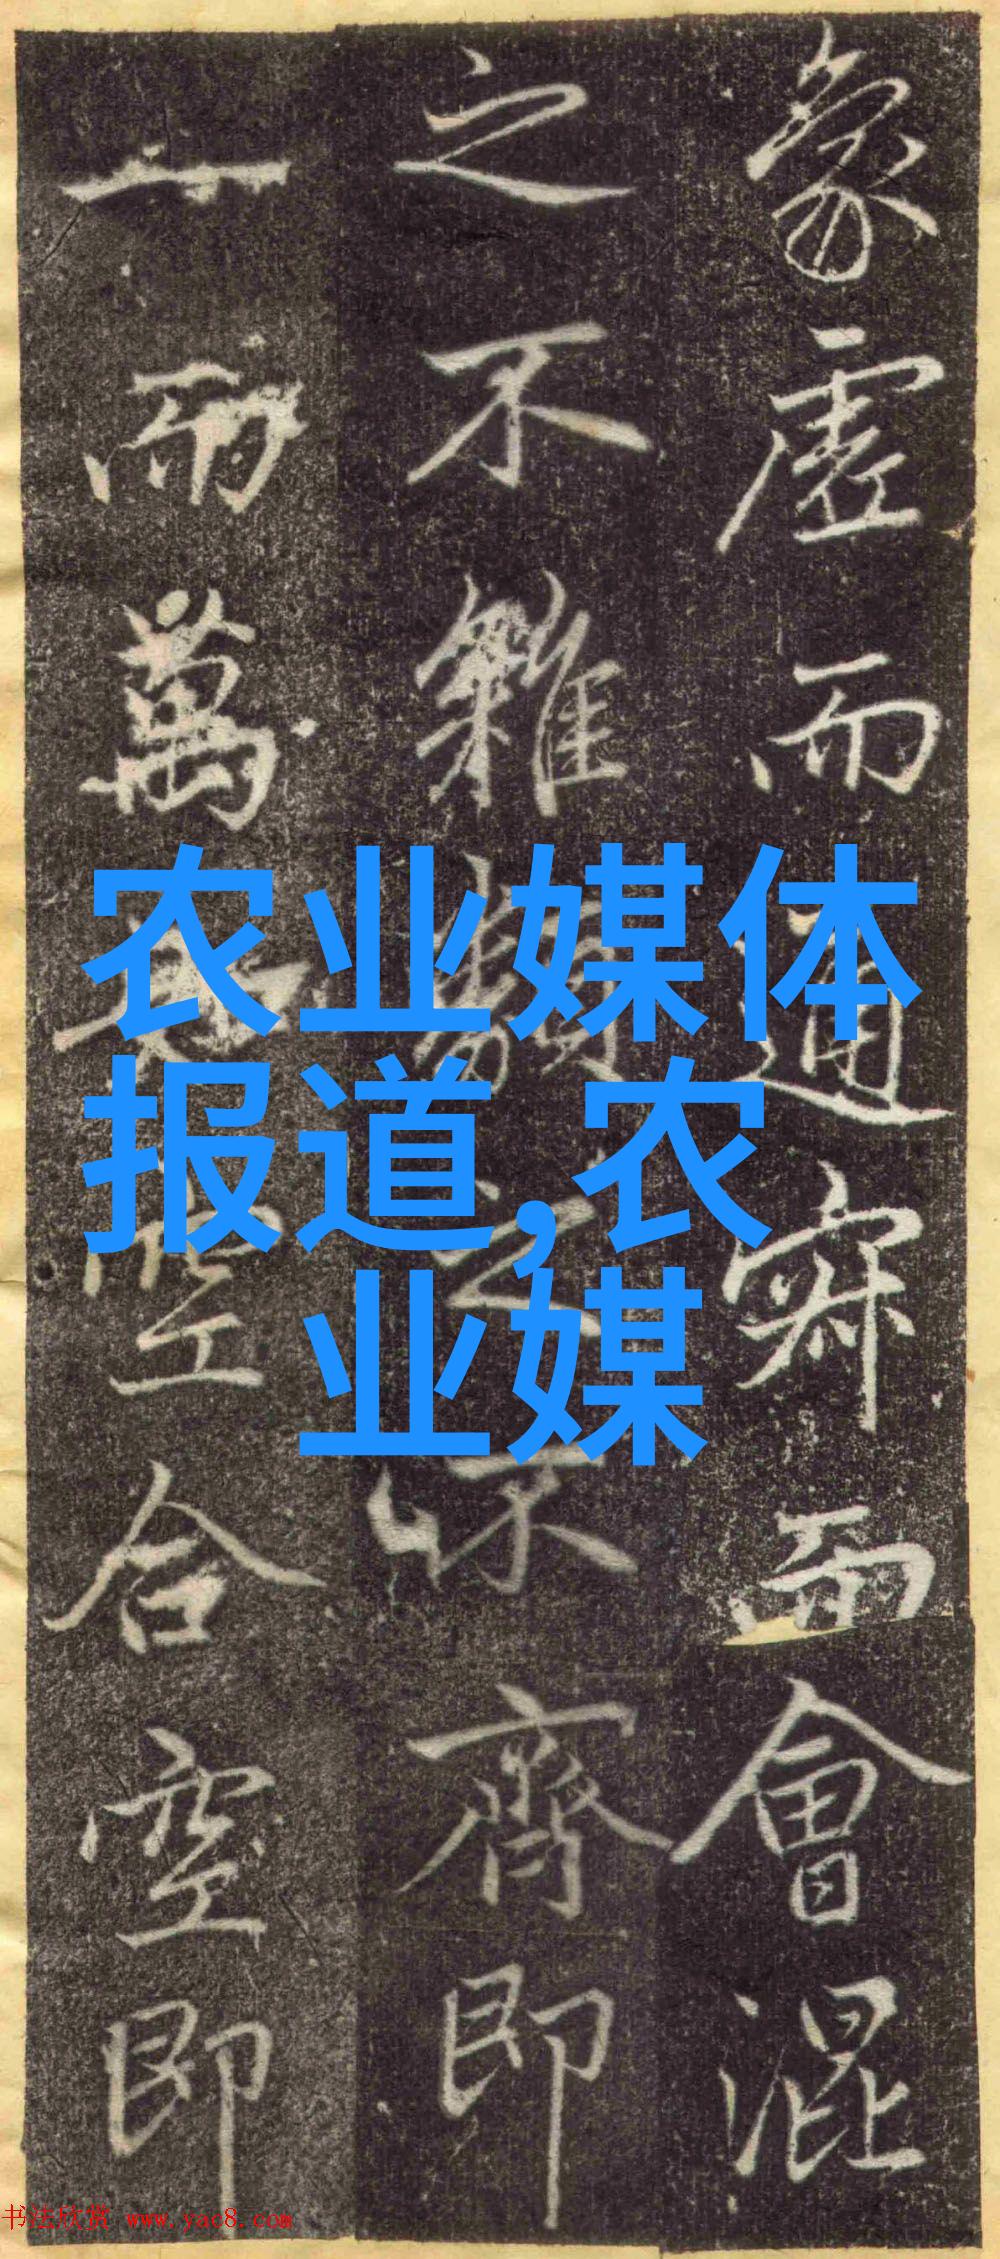 象虚而通寂而會混
之不雜之不齊即
一而萬空合空即
农业媒体
报道,农
业媒
书法欣赏 www.yac8.com